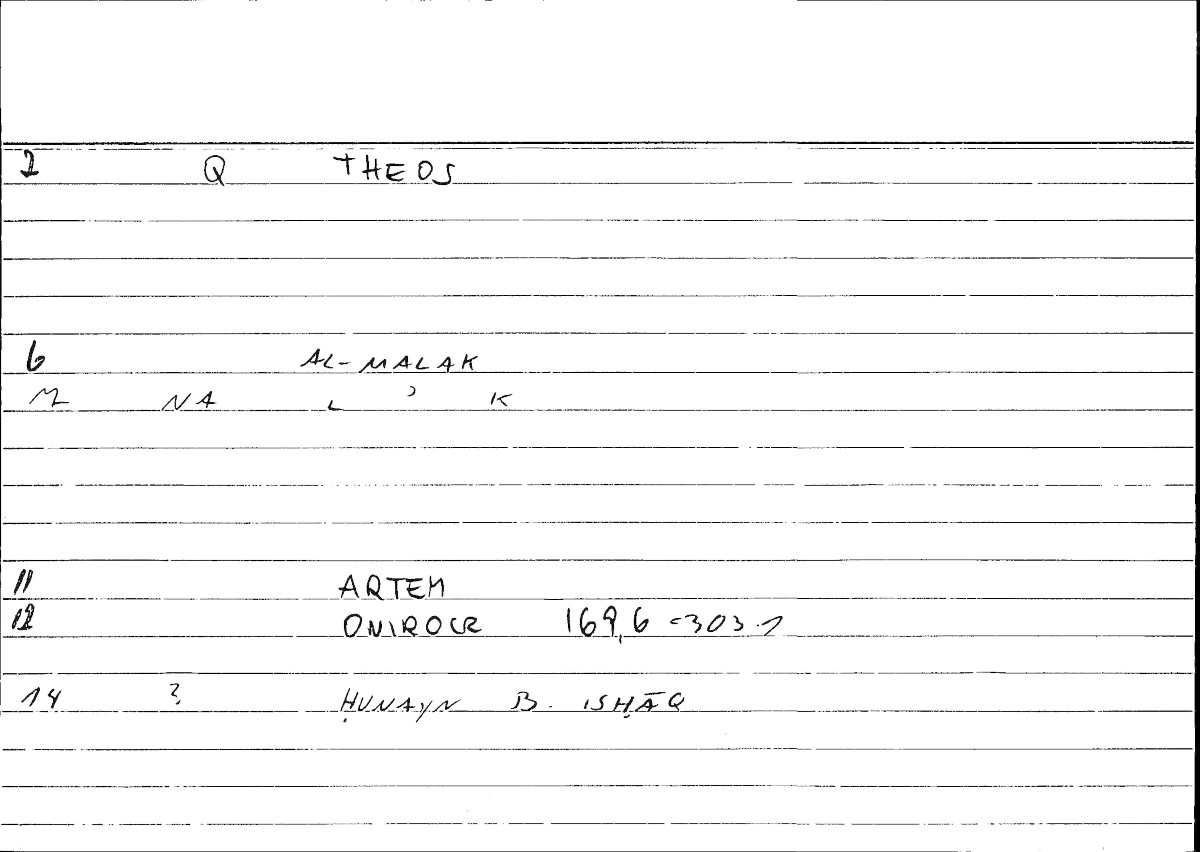 2 Q THEOS
6 AL-MALAK
M NA L ʾ K
11 ARTEM
12 ONIROCR 169,6 = 303.1
14 ? ḤUNAYN B. ISḤĀQ